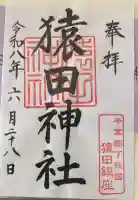 奉拝
猿田神社
令和八年六月二十八日
猿田神社
千葉県銚子市
猿田鎮座